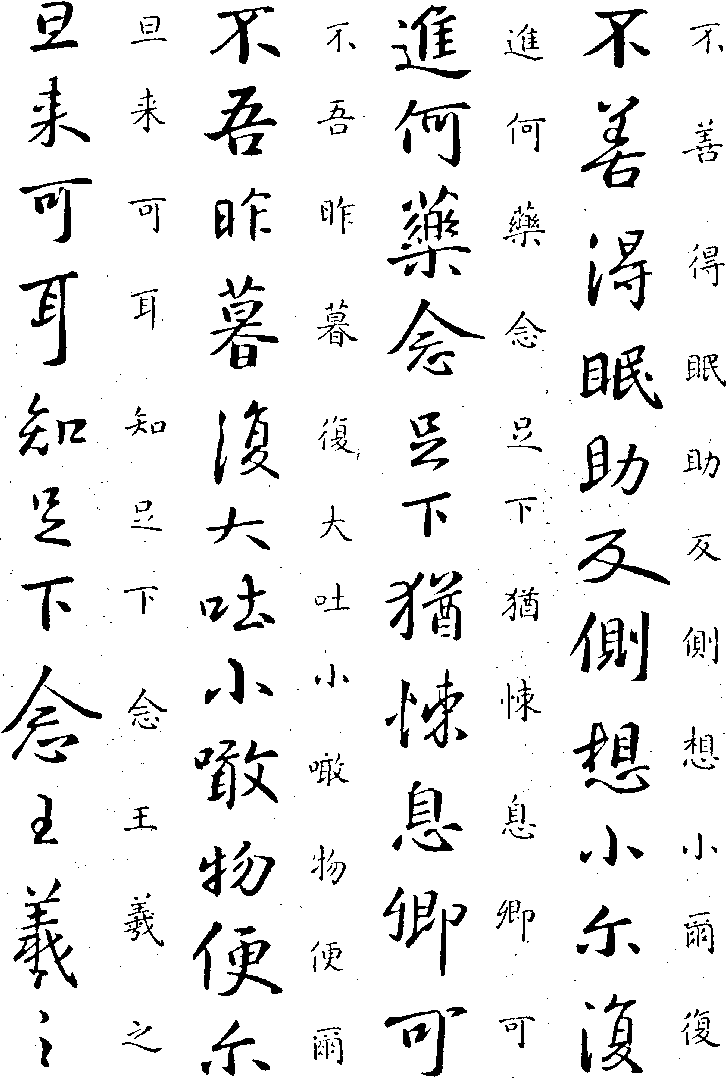 不善得眠助反側想小爾復
不善得眠助反側想小尔復
進何藥念足下猶悚息卿可
進何藥念足下猶悚息卿可
不吾昨暮復大吐小噉物便爾
不吾昨暮復大吐小噉物便尔
旦来可耳知足下念王羲之
旦来可耳知足下念王羲之